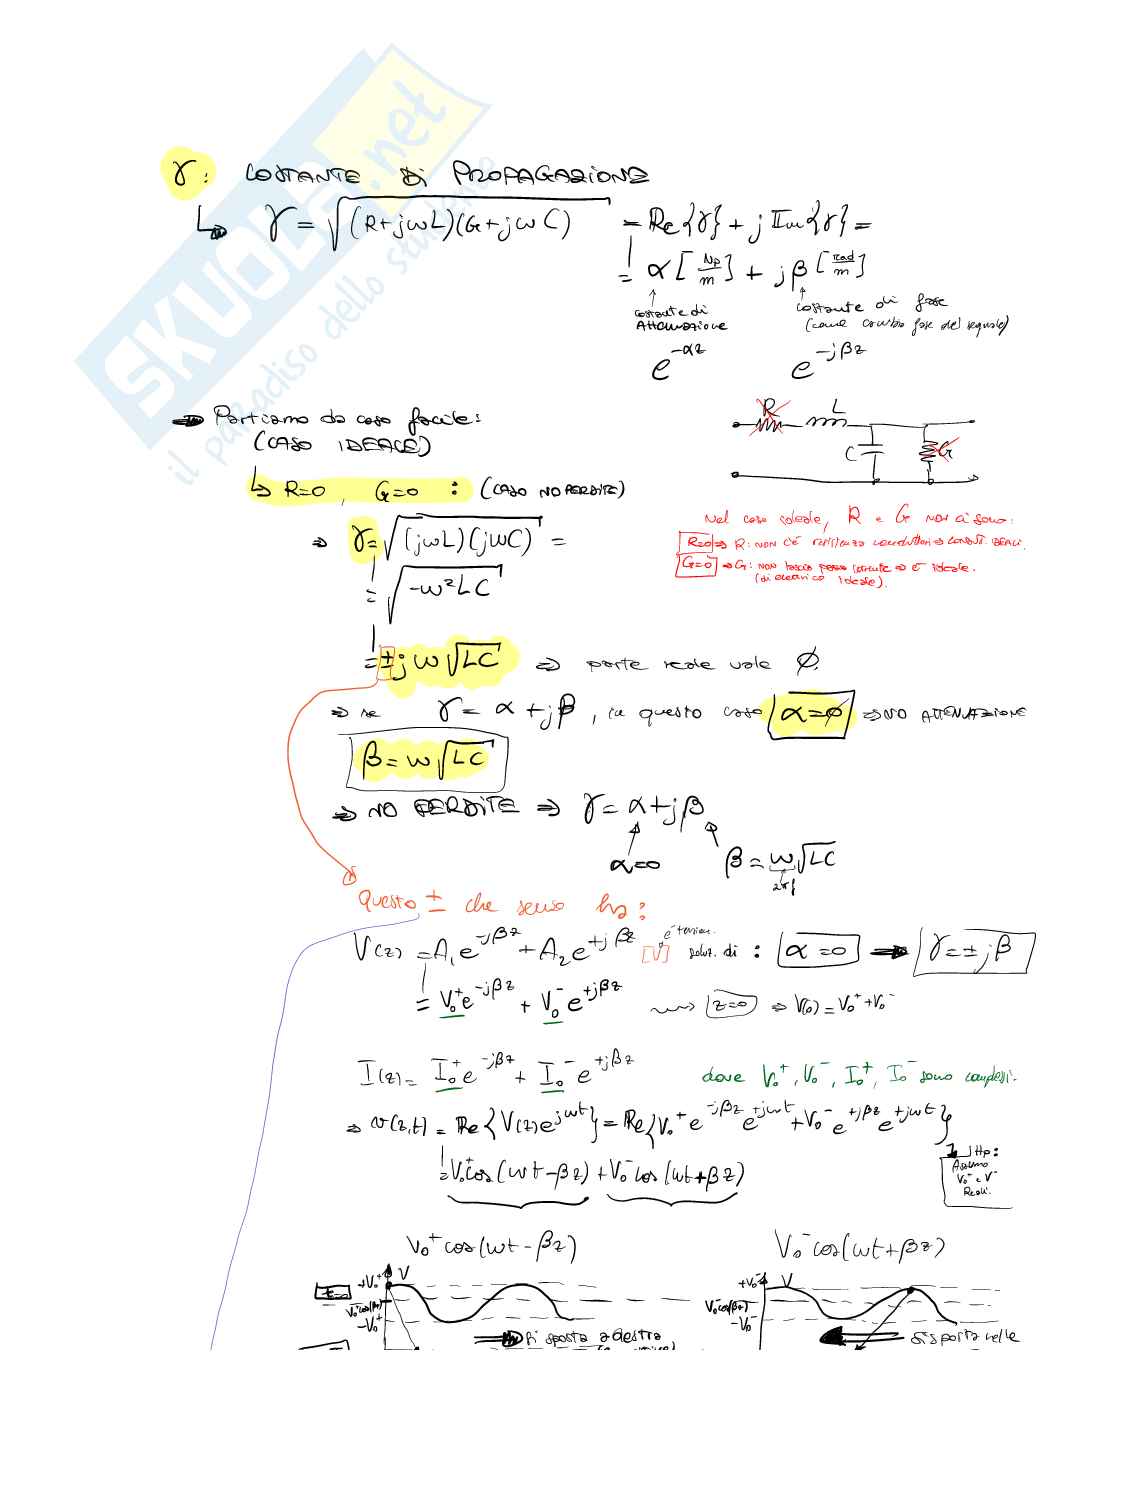 SKUOLA.net
il paradiso dello studente
γ: COSTANTE DI PROPAGAZIONE
↳ γ = √(R+jωL)(G+jωC) = Re{γ} + j Im{γ} =
= α [Np/m] + jβ [rad/m]
costante di Attenuazione
costante di fase (come cambia fase del segnale)
e^-αz e^-jβz
⇒ Partiamo da caso facile:
(CASO IDEALE)
R L
C G
↳ R=0, G=0 : (CASO NO PERDITE)
Nel caso ideale, R e G NON ci sono:
R=0 ⇒ R: NON C'È resistenza conduttori ⇒ CONDUT. IDEALI.
G=0 ⇒ G: NON lascia passare corrente ⇒ È ideale.
(dielettrico ideale).
⇒ γ = √(jωL)(jωC) =
= √-ω²LC
= ±jω√LC ⇒ parte reale vale ∅.
⇒ se γ = α + jβ, in questo caso α=∅ ⇒ NO ATTENUAZIONE
β = ω√LC
⇒ NO PERDITE ⇒ γ = α + jβ
α=0 β = ω√LC
2πf
Questo ± che senso ha?
V(z) = A₁e^-jβz + A₂e^+jβz [V] soluz. di : α=0 → γ=±jβ
= V₀⁺e^-jβz + V₀⁻e^+jβz z=0 ⇒ V(0) = V₀⁺+V₀⁻
I(z) = I₀⁺e^-jβz + I₀⁻e^+jβz dove V₀⁺, V₀⁻, I₀⁺, I₀⁻ sono complessi.
⇒ v(z,t) = Re{V(z)e^jωt} = Re{V₀⁺e^-jβz e^+jωt + V₀⁻e^+jβz e^+jωt}
Hp:
Assumo
V₀⁺ e V⁻
Reali.
= V₀⁺cos(ωt-βz) + V₀⁻cos(ωt+βz)
V₀⁺cos(ωt-βz) V₀⁻cos(ωt+βz)
t=0 +V₀⁺ V
V₀⁺cos(βz)
-V₀⁺
Si sposta a destra
+V₀⁻ V
V₀⁻cos(βz)
-V₀⁻
si sposta nelle